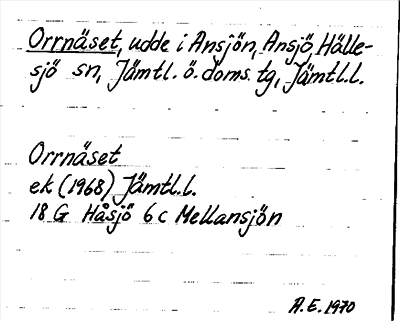 Orrnäset, udde i Ansjön, Ansjö, Hälle-
sjö sn, Jämtl. ö. doms. tg, Jämtl.l.
Orrnäset
ek (1968) Jämtl.l.
18 G Håsjö 6 c Mellansjön
A.E. 1970